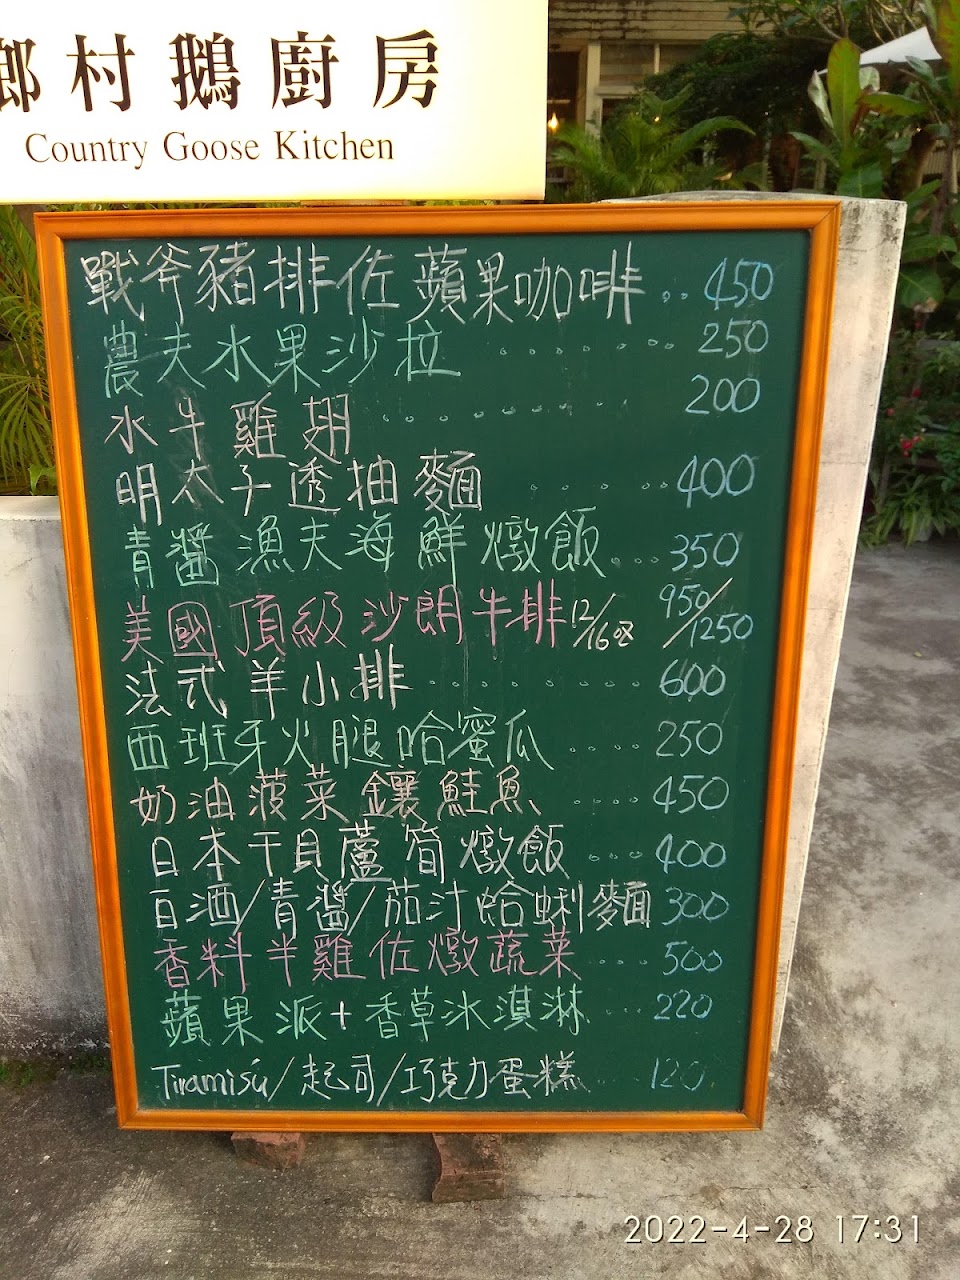 鄉村鵝廚房
Country Goose Kitchen
戰斧豬排佐蘋果咖啡..450
農夫水果沙拉........250
水牛雞翅.........200
明太子透抽麵.....400
青醬漁夫海鮮燉飯...350
美國頂級沙朗牛排12/16oz 950/1250
法式羊小排.........600
西班牙火腿哈蜜瓜....250
奶油菠菜鑲鮭魚....450
日本干貝蘆筍燉飯...400
百酒/青醬/茄汁蛤蜊麵300
香料半雞佐燉蔬菜....500
蘋果派+香草冰淇淋...220
Tiramisú/起司/巧克力蛋糕...120
2022-4-28 17:31